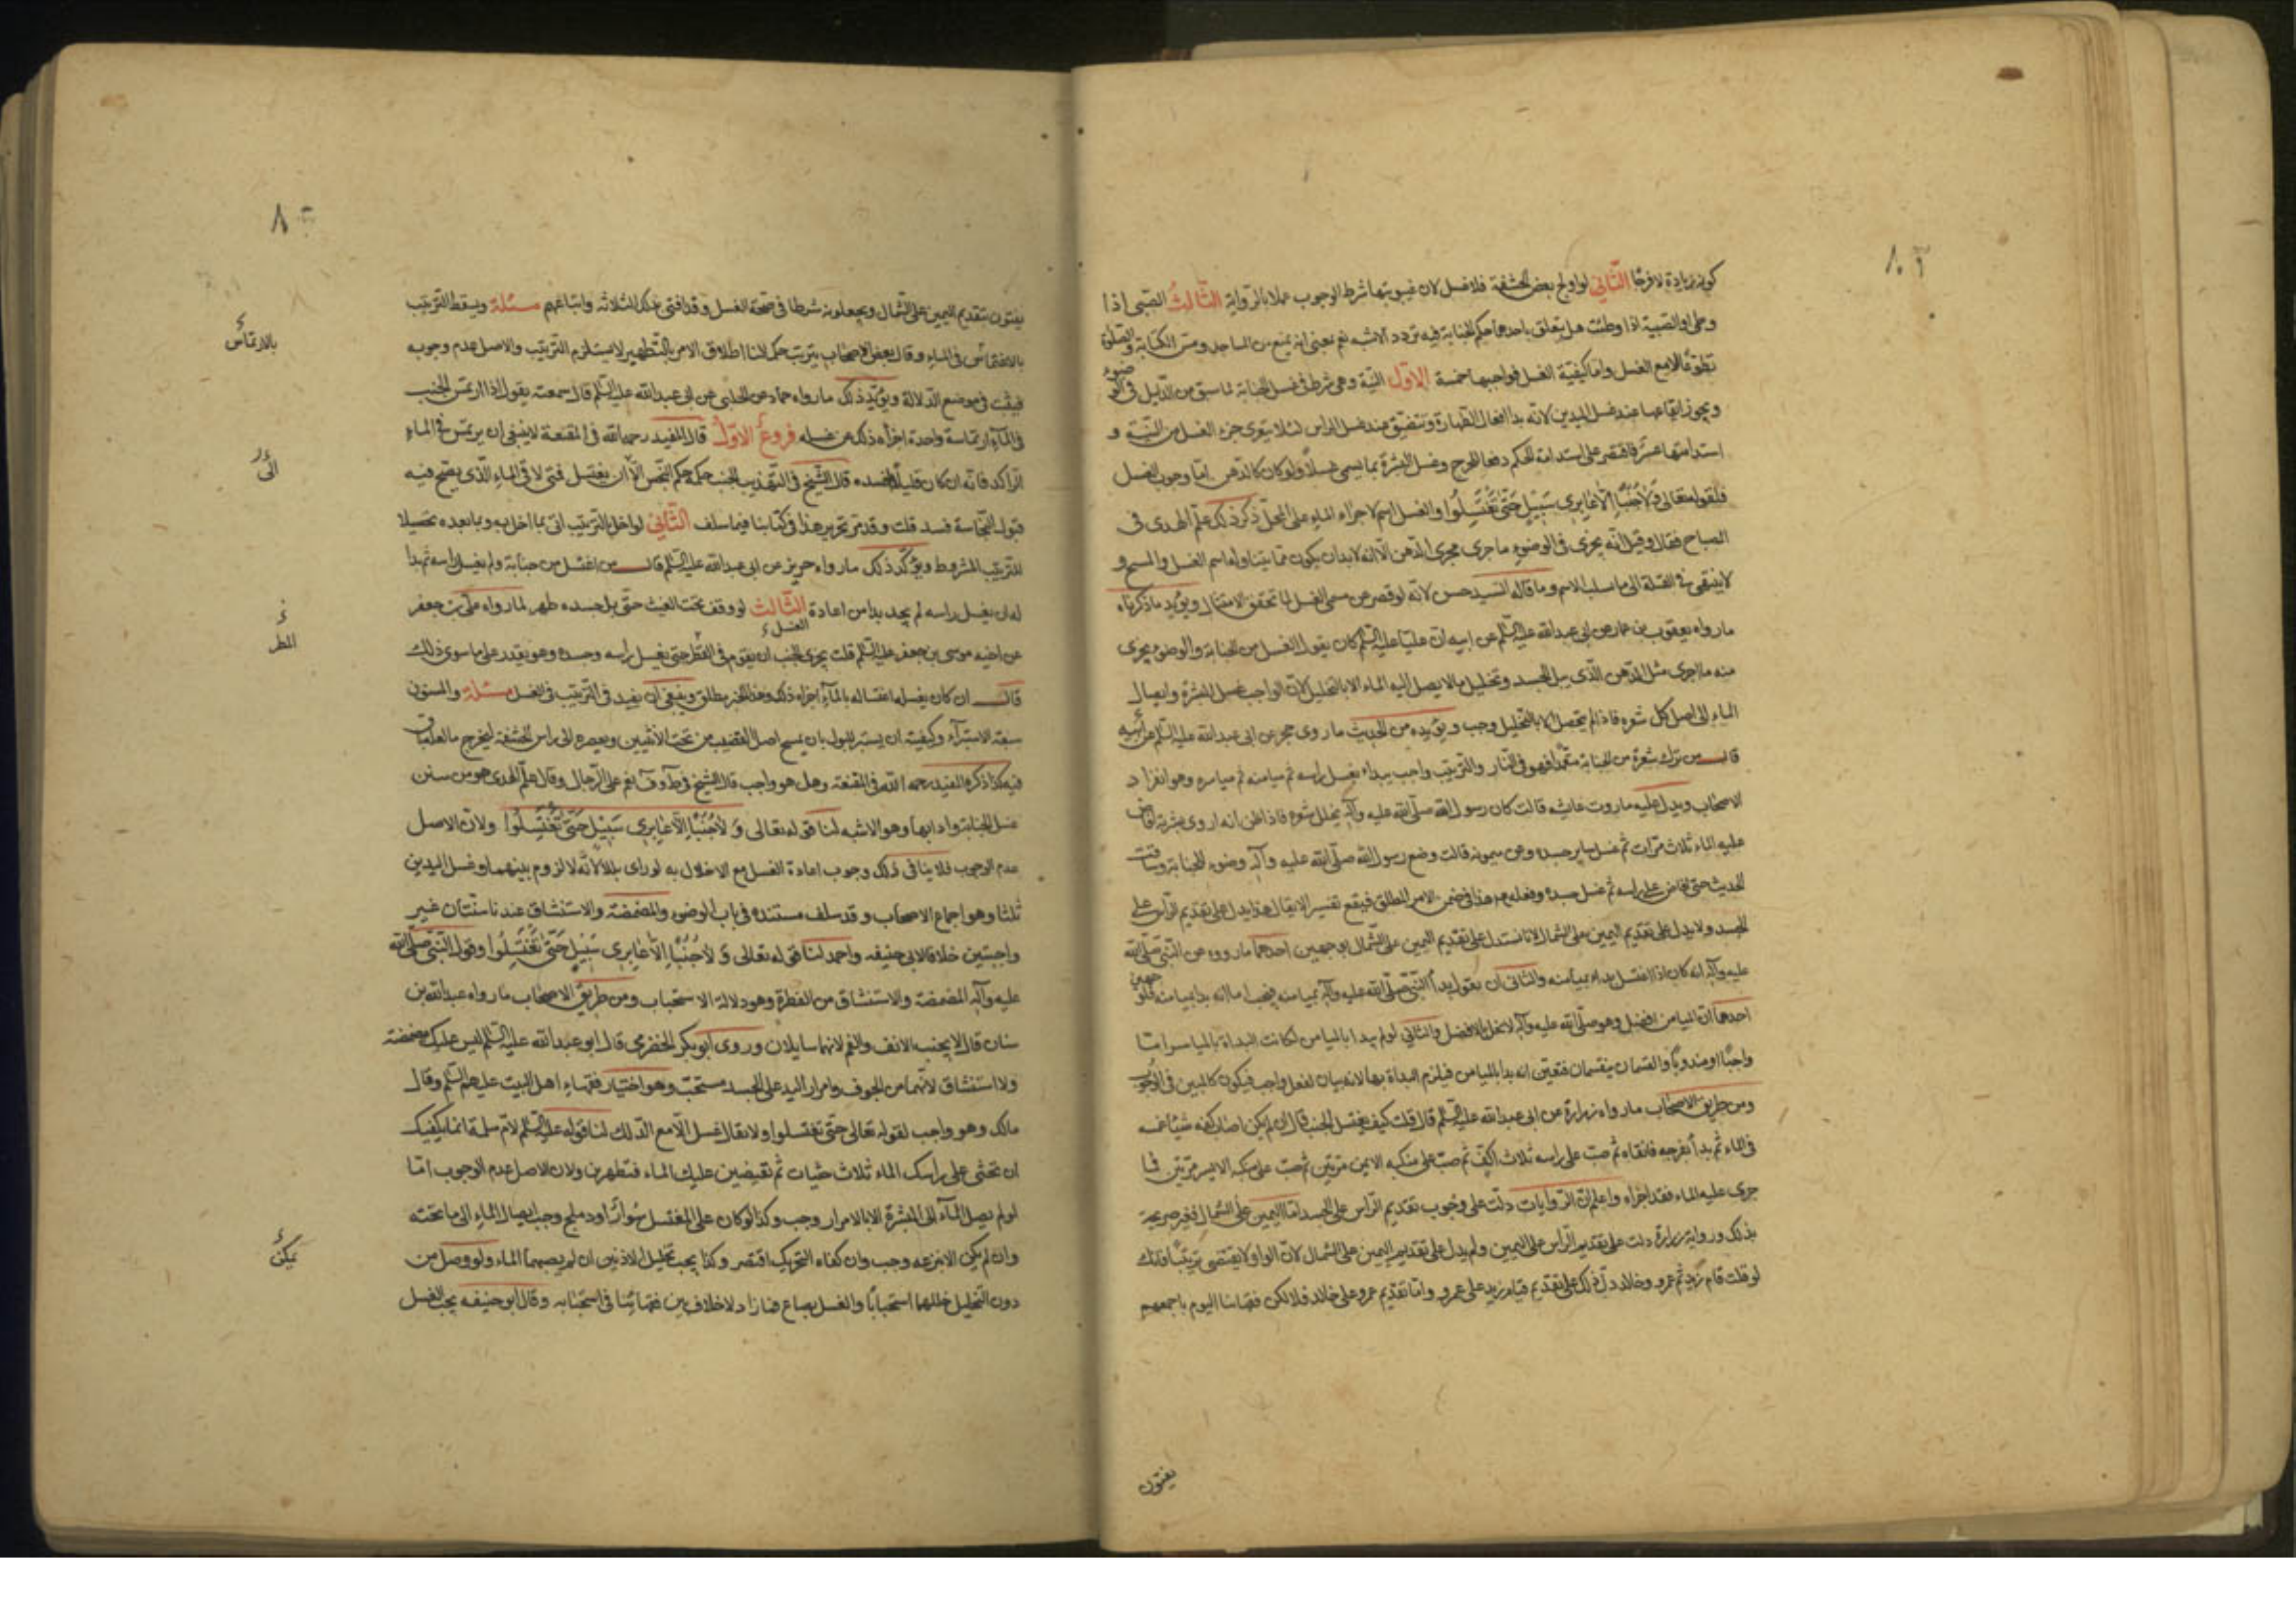 كونه زيادة لا فرجًا الثاني لو اولج بعض الحشفة فلا غسل لان غيبوبتها شرط الوجوب عملا بالرواية الثالث الصبي اذا
وطئ او الصبية اذا وطئت هل يتعلق باحدهما حكم الجنابة فيه تردد الاشبه نعم بمعنى انه يمنع من المساجد ومس الكتابة والصلوة
تطوعًا الا مع الغسل واما كيفية الغسل فواجبها خمسة الاول النية وهي شرط في غسل الجنابة لما سبق من الدليل في الوضوء
ويجوز ايقاعها عند غسل اليدين لانه بدا افعال الطهارة وتتضيق عند غسل الراس لئلا يتعرى جزء الغسل من النية و
استدامتها عسر فاقتصر على استدامة الحكم دفعا للحرج وغسل البشرة بما يسمى غسلاً ولو كان كالدهن اما وجوب الغسل
فلقوله تعالى وَلَا جُنُبًا إِلَّا عَابِرِي سَبِيلٍ حَتَّى تَغْتَسِلُوا والغسل اسم لاجراء الماء على المحل ذكر ذلك علم الهدى في
المصباح فقال وقيل انه يجزى في الوضوء ما جرى مجرى الدهن الا انه لابد ان يكون مما يتناوله اسم الغسل والمسح و
لا ينتهي في القلة الى ما سلب الاسم وما قاله السيد حسن لانه لو قصر عن مسمى الغسل لما تحقق الامتثال ويؤيد ما ذكرناه
ما رواه يعقوب بن عمار عن ابي عبدالله عليه السلم عن ابيه ان عليا عليه السلم كان يقول الغسل من الجنابة والوضوء يجزى
منه ما اجرى مثل الدهن الذي يبل الجسد وتخليل ما لا يصل اليه الماء الا بالتخليل لان الواجب غسل البشرة وايصال
الماء الى اصل كل شعره فاذا لم يحصل الا بالتخليل وجب ويؤيده من الحديث ما روى حجر عن ابى عبدالله عليه السلم
قال من ترك شعرة من الجنابة متعمدا فهو في النار والترتيب واجب يبداء بغسل راسه ثم ميامنه ثم مياسره وهو انفراد
الاصحاب ويدل عليه ما روت عايشه قالت كان رسول الله صلى الله عليه وآله يخلل شعره فاذا ظن انه اروى بشرته افاض
عليه الماء ثلاث مرات ثم غسل ساير جسده وعن ميمونه قالت وضع رسول الله صلى الله عليه وآله وضوء للجنابة وساقت
الحديث حتى افاض على راسه ثم غسل جسده وفعله هذا في ضمن الامر المطلق فيقع تفسير الايقال هذا يدل على تقديم الراس على
الجسد ولا يدل على تقديم اليمين على الشمال لانا نستدل على تقديم اليمين على الشمال بوجهين احدهما ما رووه عن النبي صلى الله
عليه وآله انه كان اذا اغتسل بداء بميامنه والثاني ان نقول بدأ النبي صلى الله عليه وآله بميامنه فيجب اما انه بدا بميامنه فلوجهين
احدهما ان الميامن افضل وهو صلى الله عليه وآله لا يخل بالافضل والثاني لو لم يبدا بالميامن لكانت البداة بالمياسر اما
واجبًا او مندوبًا والقسمان منفيان فتعين انه بدا بالميامن فيلزم البداة بها لانه بيان لفعل واجب فيكون كالمبين في الوجوب
ومن طريق الاصحاب ما رواه زرارة عن ابى عبدالله عليه السلم قال قلت كيف يغتسل الجنب قال ان لم يكن اصاب كفه شئ غمسه
في الماء ثم بدأ بفرجه فانقاه ثم صب على راسه ثلاث اكف ثم صب على منكبه الايمن مرتين ثم صب على منكبه الايسر مرتين فما
جرى عليه الماء فقد اجزاه واعلم ان الروايات دلت على وجوب تقديم الراس على الجسد اما اليمين على الشمال فغير صريحة
بذلك ورواية زرارة دلت على تقديم الراس على اليمين ولم يدل على تقديم اليمين على الشمال لان الواو لا يقتضى ترتيبًا فانك
لو قلت قام زيد ثم عمرو وخالد دل ذلك على تقديم قيام زيد على عمرو واما تقديم عمرو على خالد فلا لكن فقهاءنا اليوم باجمعهم
يفتون
يفتون بتقديم اليمين على الشمال ويجعلونه شرطا في صحة الغسل وقد افتى بذلك الثلاثه واتباعهم مسئلة ويسقط الترتيب
بالارتماس
بالاغتماس في الماء وقال بعض الاصحاب يترتب حكما لنا اطلاق الامر بالتطهير لا يستلزم الترتيب والاصل عدم وجوبه
فيثبت في موضع الدلالة ويؤيد ذلك ما رواه حماد عن الحلبي عن ابى عبدالله عليه السلم قال سمعته يقول اذا ارتمس الجنب
في الماء ارتماسة واحدة اجزأه ذلك عن غسله فروع الاول قال المفيد رحمه الله في المقنعة لا ينبغي ان يرتمس في الماء
الراكد فانه ان كان قليلا افسده قال الشيخ في التهذيب الجنب حكمه حكم النجس الى ان يغتسل فمتى لاقى الماء الذي يصح فيه
الى
قبول النجاسة فسد قلت وقد مر تحرير هذا في كتابنا فيما سلف الثاني لو اخل بالترتيب اتى بما اخل به وبما بعده تحصيلا
للترتيب المشروط ويؤكد ذلك ما رواه حريز عن ابى عبدالله عليه السلم قال من اغتسل من جنابة ولم يغسل راسه ثم بدا
له ان يغسل راسه لم يجد بدا من اعادة الغسل الثالث لو وقف تحت الغيث حتى بل جسده طهر لما رواه على بن جعفر
المطر
عن اخيه موسى بن جعفر عليه السلم قلت يجزى الجنب ان يقوم في القطر حتى يغسل راسه وجسده وهو يقدر على ما سوى ذلك
قال ان كان يغسله اغتساله بالماء اجزاه ذلك وهذا الخبر مطلق وينبغي ان يقيد في الترتيب في الغسل مسئلة والمسنون
سبعة الاستبرآء وكيفيته ان يستبرى بالبول بان يمسح اصل القضيب من تحت الانثيين ويعصره الى راس الحشفة ليخرج ما لعله باق
فيه كذا ذكره المفيد رحمه الله في المقنعة وهل هو واجب قال الشيخ في ط وف نعم على الرجال وقال علم الهدى هو من سنن
غسل الجنابة وادابها وهو الاشبه لنا قوله تعالى وَلَا جُنُبًا إِلَّا عَابِرِي سَبِيلٍ حَتَّى تَغْتَسِلُوا ولان الاصل
عدم الوجوب فلا ينافي ذلك وجوب اعادة الغسل مع الاخلال به لو راى بللا لانه لا لزوم بينهما وغسل اليدين
ثلثا وهو اجماع الاصحاب وقد سلف مستنده في باب الوضوء والمضمضة والاستنشاق عندنا سنتان غير
واجبتين خلافا لابى حنيفه واحمد لنا قوله تعالى وَلَا جُنُبًا إِلَّا عَابِرِي سَبِيلٍ حَتَّى تَغْتَسِلُوا وقول النبي صلى الله
عليه وآله المضمضة والاستنشاق من الفطرة وهو دلالة الاستحباب ومن طريق الاصحاب ما رواه عبدالله بن
سنان قال لا يجنب الانف والفم لانهما سايلان وروى ابو بكر الحضرمي قال ابو عبدالله عليه السلم ليس عليك مضمضة
ولا استنشاق لانهما من الجوف وامرار اليد على الجسد مستحب وهو اختيار فقهاء اهل البيت عليهم السلم وقال
مالك وهو واجب لقوله تعالى حتى تغتسلوا ولا يقال غسل الا مع الدلك لنا قوله عليه السلم لام سلمة انما يكفيك
ان تحثى على راسك الماء ثلاث حثيات ثم تفيضين عليك الماء فتطهرين ولان الاصل عدم الوجوب اما
لو لم يصل الماء الى البشرة الا بالامرار وجب وكذا لو كان على المغتسل سوار او دملج وجب ايصال الماء الى ما تحته
وان لم يكن الا بنزعه وجب وان كفاه التحريك اقتصر وكذا يجب تخليل الاذنين ان لم يصبهما الماء ولو وصل من
يمكن
دون التخليل خللهما استحبابًا والغسل بصاع فما زاد لا خلاف بين فقهائنا في استحبابه وقال ابو حنيفه يجب الغسل